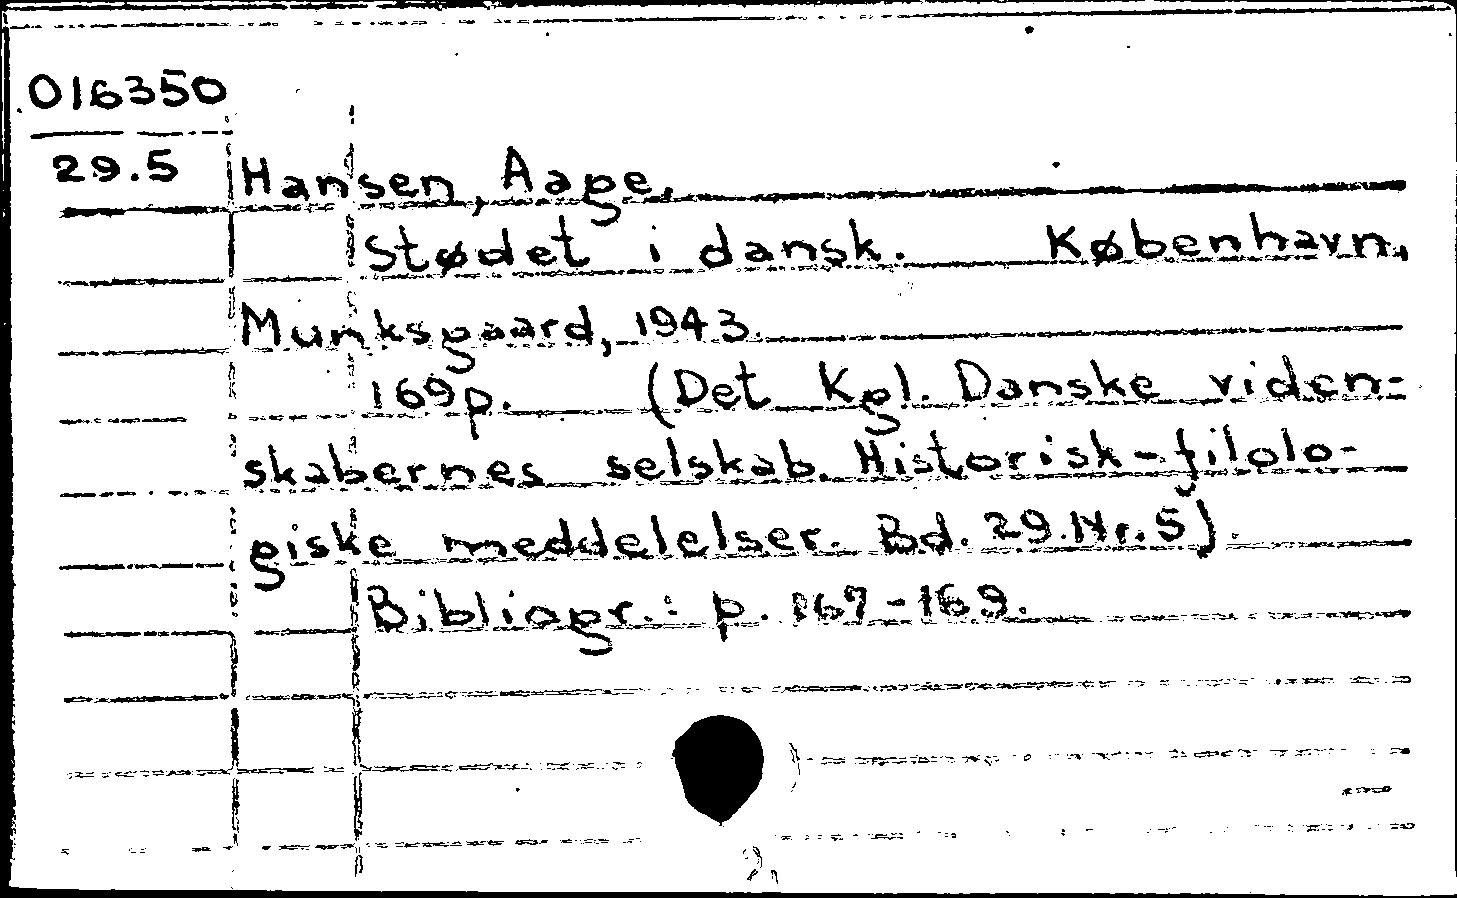 016350
29.5 Hansen, Aage.
Stødet i dansk. København,
Munksgaard, 1943.
169p. (Det Kgl. Danske viden-
skabernes selskab. Historisk-filolo-
giske meddelelser. Bd. 29. Nr. 5).
Bibliogr.: p. 167-169.